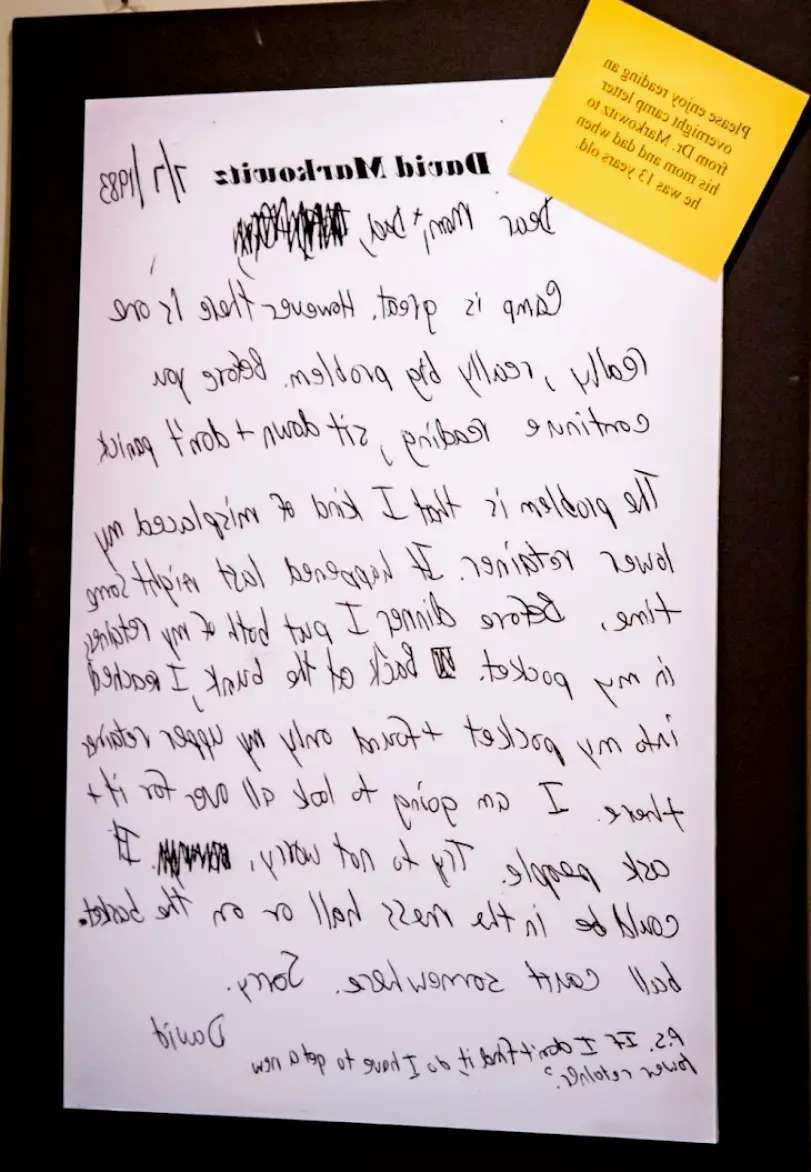 Please enjoy reading an
overnight camp letter
from Dr. Markowitz to
his mom and dad when
he was 13 years old.
David Markowitz
7/7/1983
Dear Mom, + Dad,
Camp is great. However there is one
really, really big problem. Before you
continue reading, sit down + don't panick
The problem is that I kind of misplaced my
lower retainer. It happened last night some
time. Before dinner I put both of my retainers
in my pocket. Back at the bunk, I reached
into my pocket + found only my upper retainer
there. I am going to look all over for it +
ask people. Try to not worry, It
could be in the mess hall or on the basket-
ball court somewhere. Sorry.
David
P.S. If I don't find it, do I have to get a new
lower retainer?